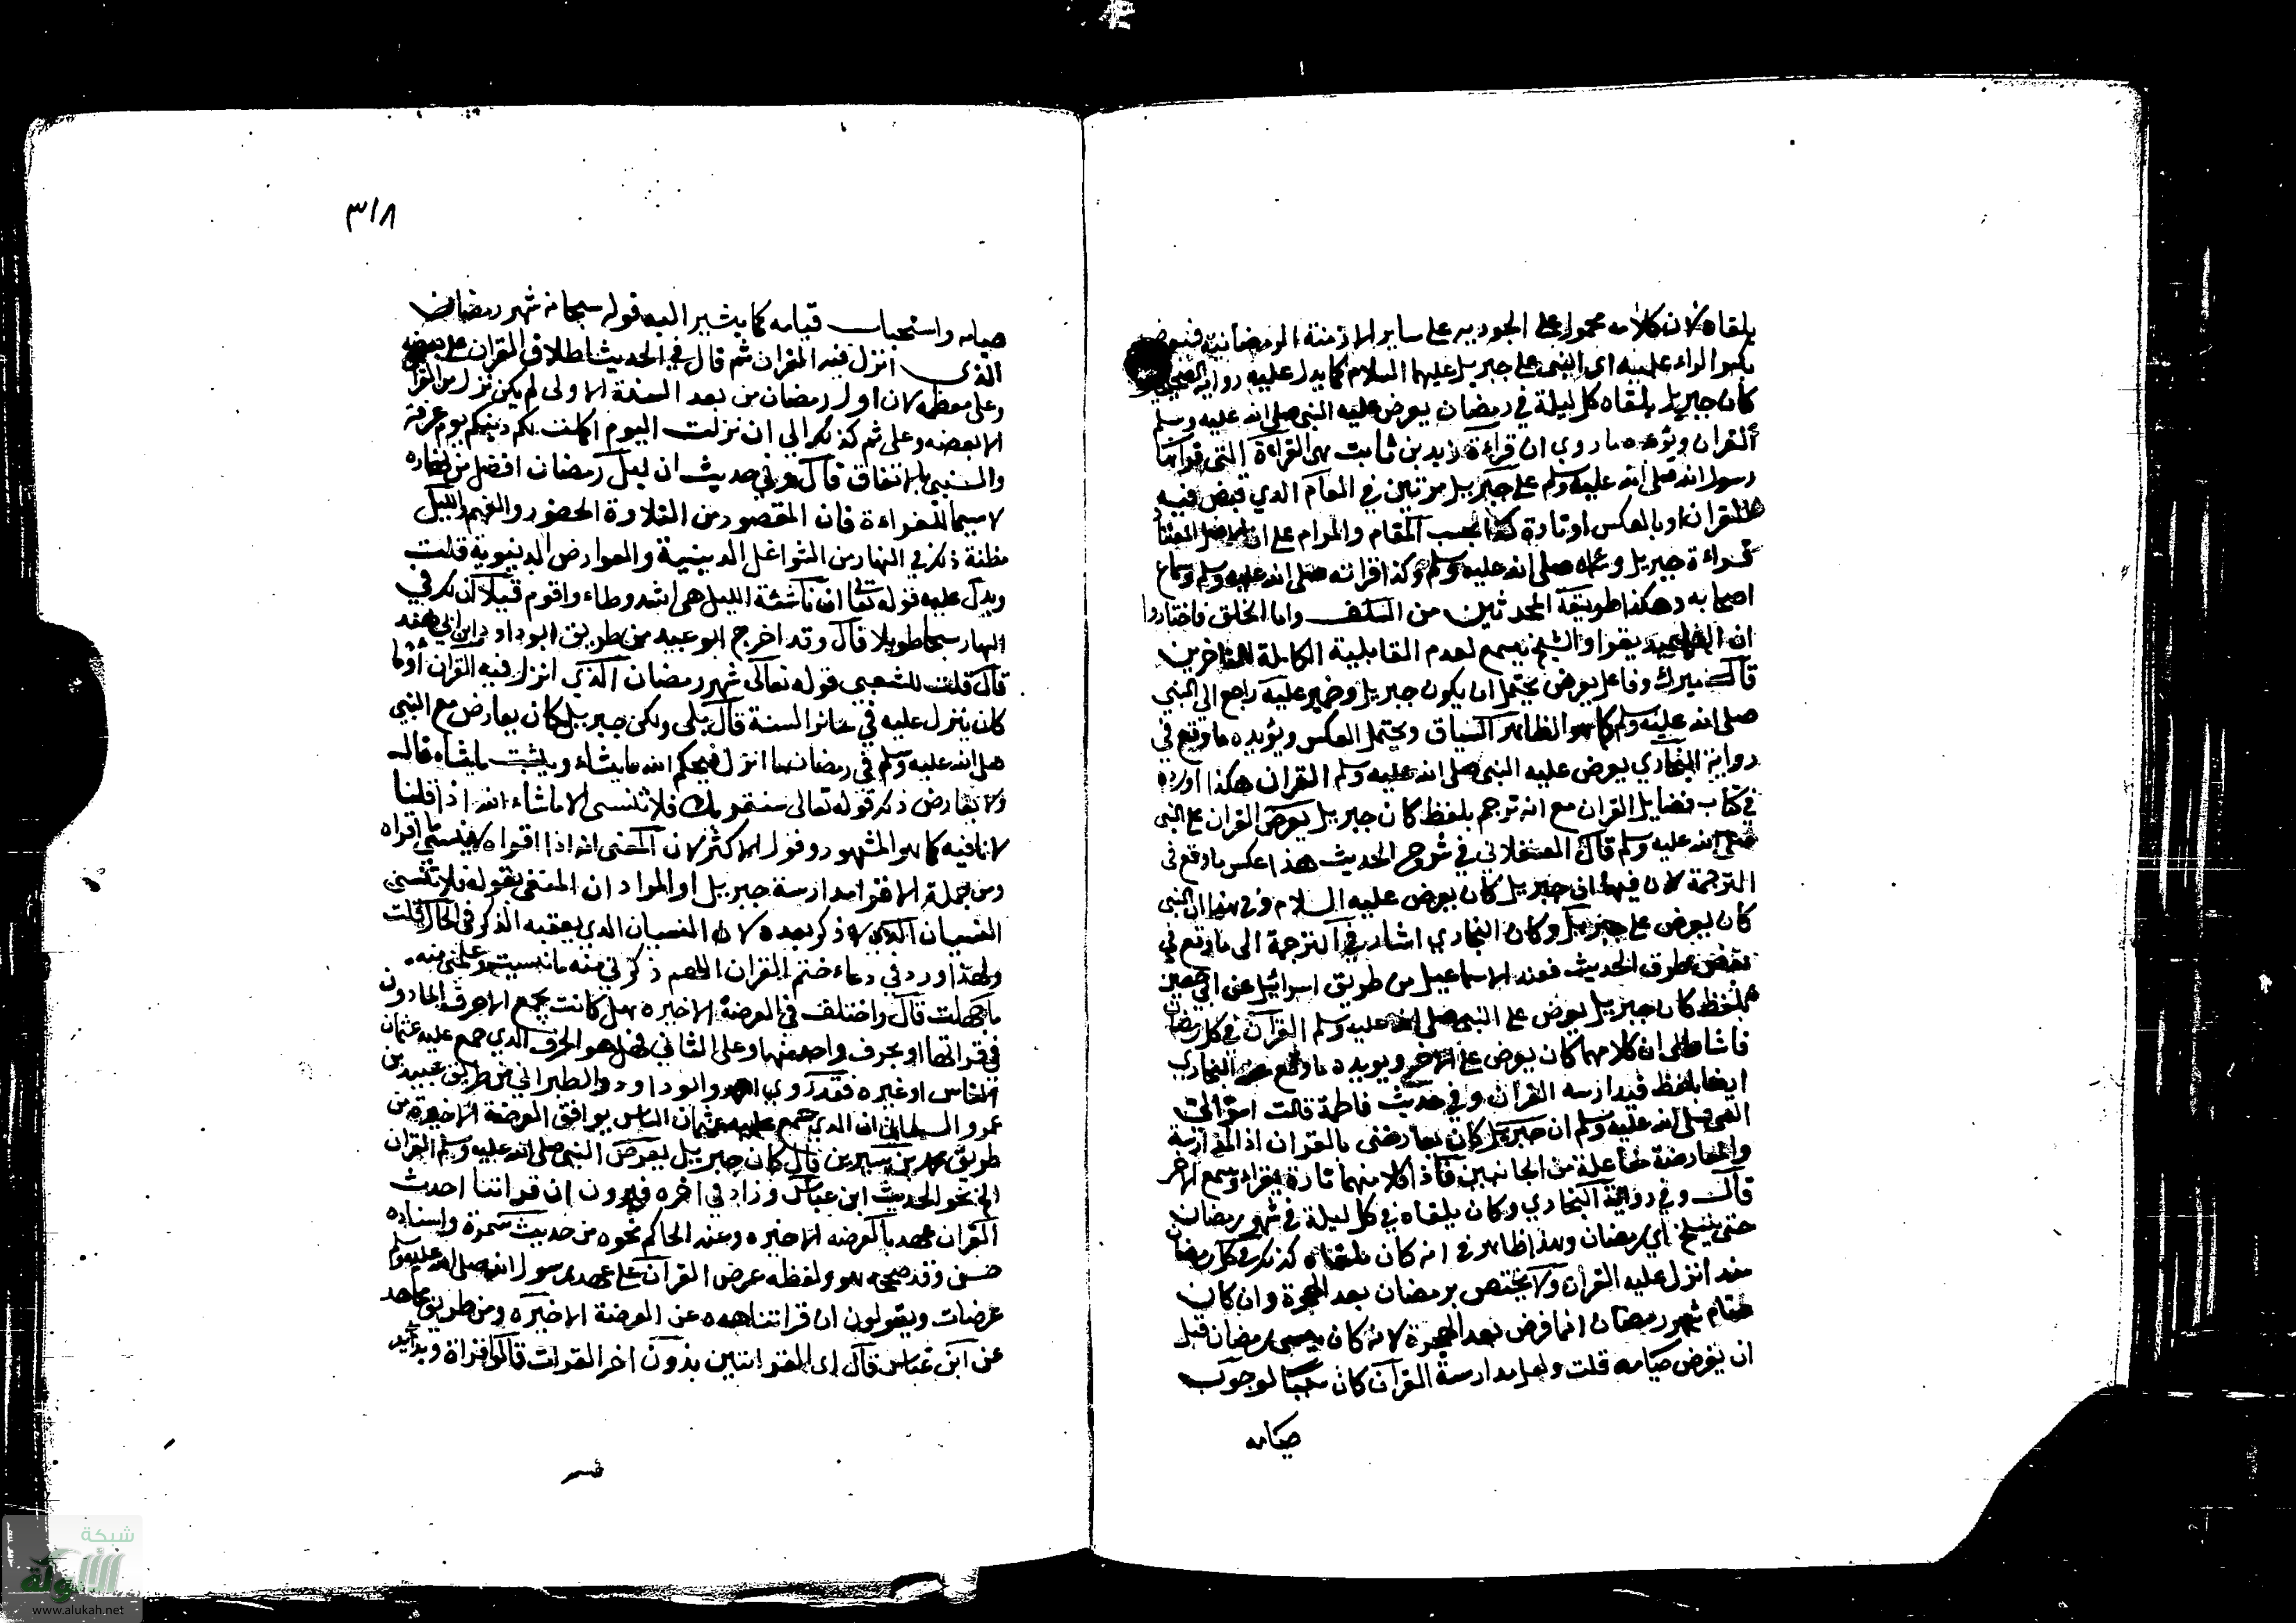 يلقاه لان كلامه محمول على الجود يربو على ساير الازمنة الرمضانية فنعرض
بكسر الراء عليه اي النبي على جبريل عليهما السلام كما يدل عليه رواية الصحيحين
كان جبريل يلقاه كل ليلة في رمضان يعرض عليه النبي صلى الله عليه وسلم
القران ويؤيده ما روي ان قراءة زيد بن ثابت هي القراءة التي قراها
رسول الله صلى الله عليه وسلم على جبريل مرتين في العام الذي قبض فيه
القران او بالعكس او تارة كذا بحسب المقام والمرام على ان الاصل
قراءة جبريل وعمله صلى الله عليه وسلم وكذا قراته صلى الله عليه وسلم وسماع
اصحابه وهكذا طريقة المحدثين من السلف واما الخلف فاختاروا
ان التلميذ يقرا والشيخ يسمع لعدم القابلية الكاملة للمتاخرين
قال ميرك وفاعل يعرض يحتمل ان يكون جبريل وضمير عليه راجع الى النبي
صلى الله عليه وسلم كما هو الظاهر السياق ويحتمل العكس ويؤيده ما وقع في
رواية البخاري يعرض عليه النبي صلى الله عليه وسلم القران هكذا اورده
في كتاب فضايل القران مع انه ترجم بلفظ كان جبريل يعرض القران على النبي
صلى الله عليه وسلم قال العسقلاني في شرح الحديث هذا عكس ما وقع في
الترجمة لان فيها ان جبريل كان يعرض عليه السلام وفي هذا ان النبي
كان يعرض على جبريل وكان البخاري اشار في الترجمة الى ما وقع في
بعض طرق الحديث فعند الاسماعيل من طريق اسرائيل عن ابي حصين
بلفظ كان جبريل يعرض على النبي صلى الله عليه وسلم القران في كل رمضان
فاشار الى ان كلا منهما كان يعرض على الاخر ويويده ما وقع عند البخاري
ايضا بلفظ فيدارسه القران وفي حديث فاطمة قالت اسر الي
النبي صلى الله عليه وسلم ان جبريل كان يعارضني بالقران اذ المدارسة
والمعارضة مفاعلة من الجانبين فافاد كلا منهما تارة يقرا ويسمع الاخر
قال وفي رواية البخاري وكان يلقاه في كل ليلة في شهر رمضان
حتى ينسلخ اي رمضان وهذا ظاهر في انه كان يلقاه كذلك في كل رمضان
منذ انزل عليه القران ولا يختص برمضان بعد الهجرة وان كان
صيام شهر رمضان انما فرض بعد الهجرة لانه كان يسمى رمضان قبل
ان يفرض صيامه قلت ولعل مدارسة القران كان سببا لوجوب
صيامه
٣١٨
صيامه واستحباب قيامه كما يشير اليه قوله سبحانه شهر رمضان
الذي انزل فيه القران ثم قال في الحديث اطلاق القران على بعضه
وعلى معظمه لان اول رمضان من بعد السنة الاولى لم يكن نزل من القران
الا بعضه وعلى ثم كذلك الى ان نزلت اليوم اكملت لكم دينكم يوم عرفة
والنبي بالاتفاق قال وفي حديث ان ليل رمضان افضل من نهاره
لا سيما للقراءة فان المقصود من التلاوة الحضور والفهم والليل
مظنة ذلك في النهار من الشواغل الدينية والعوارض الدنيوية قلت
ويدل عليه قوله تعالى ان ناشئة الليل هي اشد وطاء واقوم قيلا ان لك في
النهار سبحا طويلا قال وقد اخرج ابو عبيد من طريق ابو داود بن ابي هند
قال قلت للشعبي قوله تعالى شهر رمضان الذي انزل فيه القران افما
كان ينزل عليه في سائر السنة قال بلى ولكن جبريل كان يعارض مع النبي
صلى الله عليه وسلم في رمضان ما انزل فيحكم الله ما يشاء ويثبت ما يشاء قال
ولا يعارض ذلك قوله تعالى سنقريك فلا تنسى الا ما شاء الله اذ قلنا
لا نافيه كما هو المشهور وقول الاكثر لان المعنى انه اذا اقراه لا ينسى ما اقراه
ومن جملة الاقرا مدارسة جبريل او المراد ان المنفي بقوله فلا تنسى
النسيان الذي لا ذكر بعده لان النسيان الذي يعقبه الذكر في الحال قلت
ولهذا ورد في دعاء ختم القران اللهم ذكرني منه ما نسيت وعلمني منه
ما جهلت قال واختلف في العرضة الاخيره هل كانت بجمع الاحرف الماذون
في قراتها او بحرف واحد منها وعلى الثاني فهل هو الحرف الذي جمع عليه عثمان
الناس او غيره فقد روي احمد وابو داود والطبراني من طريق عبيد بن
عمرو السلماني ان الذي جمع عليه عثمان الناس يوافق العرضة الاخيرة من
طريق محمد بن سيرين قال كان جبريل يعرض النبي صلى الله عليه وسلم القران
الخ نحو الحديث ابن عباس وزاد في اخره فيرون ان قراتنا احدث
القران عهدا بالعرضه الاخيره وعند الحاكم نحوه من حديث سمرة واسناده
حسن وقد صححه هو ولفظه عرض القران على عهد رسول الله صلى الله عليه وسلم
عرضات ويقولون ان قراتنا هذه عن العرضة الاخيره ومن طريق مجاهد
عن ابن عباس قال اي القراتين يرون اخر القرات قالوا قراة زيد